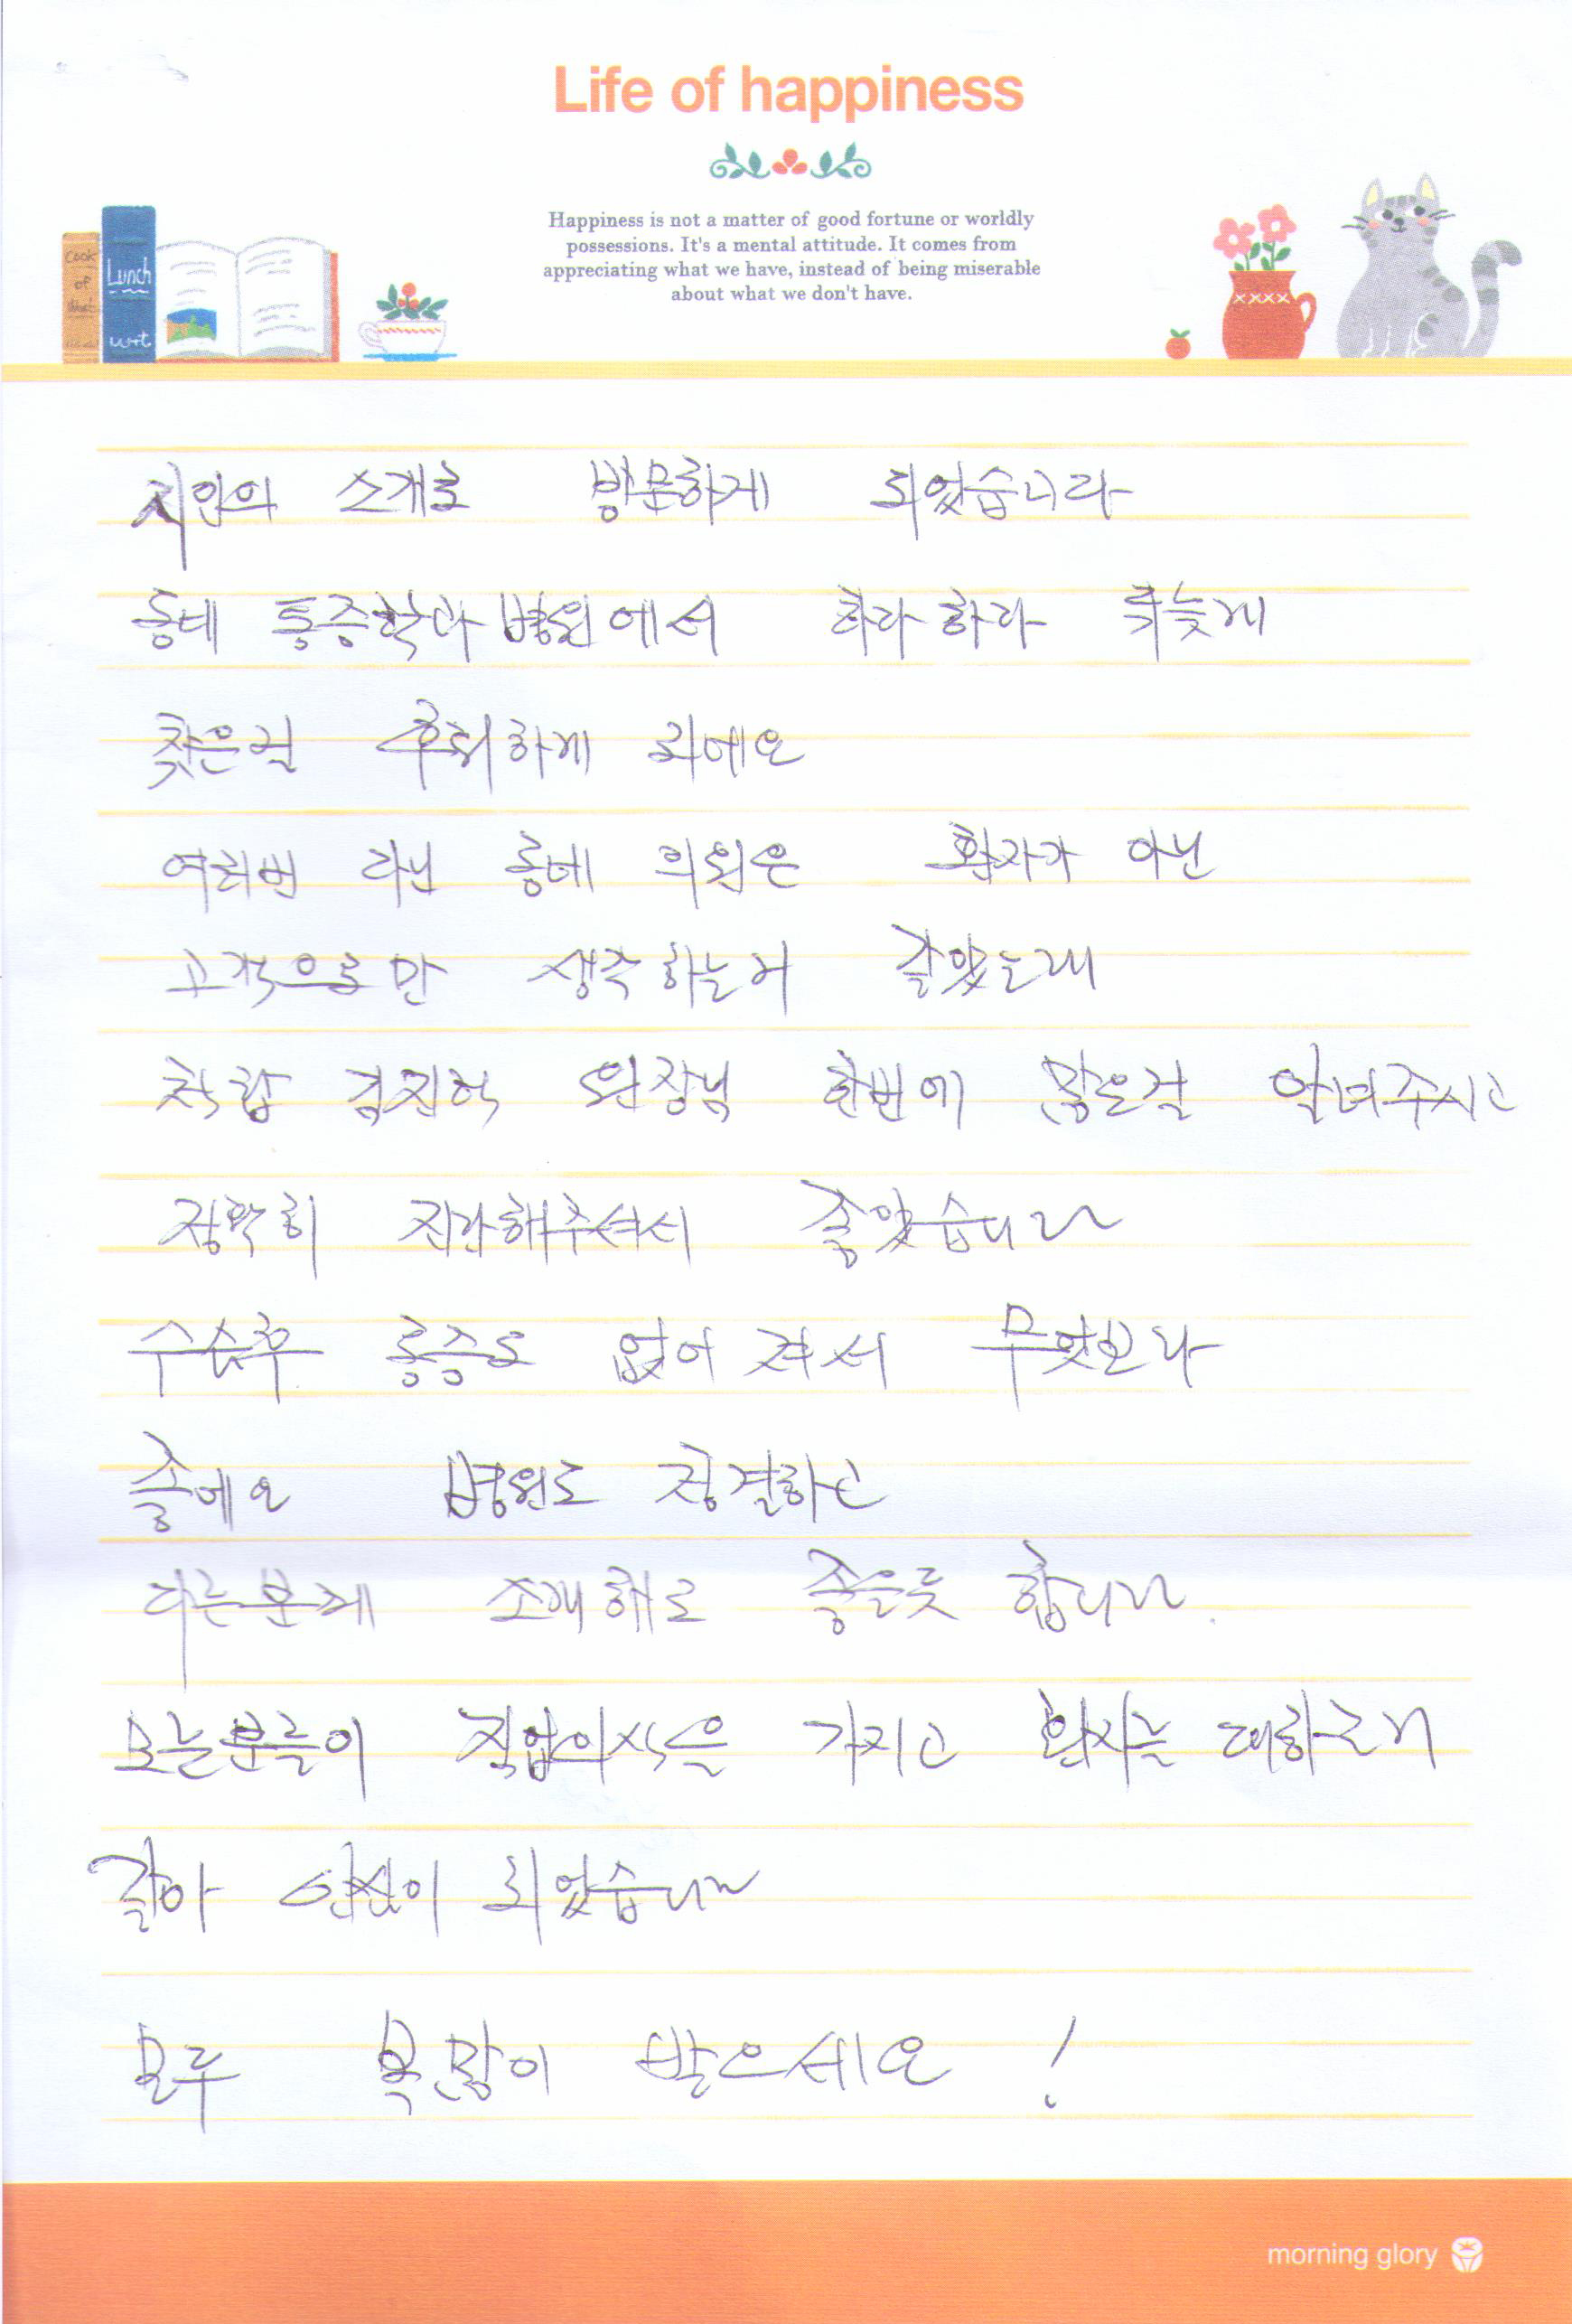 Life of happiness
Happiness is not a matter of good fortune or worldly
possessions. It's a mental attitude. It comes from
appreciating what we have, instead of being miserable
about what we don't have.
Cook
of
Lunch
지인의 소개로 방문하게 되었습니다
동네 통증학과 병원에서 하다하다 뒤늦게
찾은걸 후회하게 되네요
여러번 다닌 동네 의원은 환자가 아닌
고객으로만 생각하는거 같았는데
척탑 김진혁 원장님 한번에 많은걸 알려주시고
정확히 진단해주셔서 좋았습니다
수술후 통증도 없어져서 무엇보다
좋네요 병원도 청결하고
다른분께 소개해도 좋을듯 합니다.
모든분들이 직업의식을 가지고 환자를 대하는거
같아 안심이 되었습니다
모두 복많이 받으세요 !
morning glory